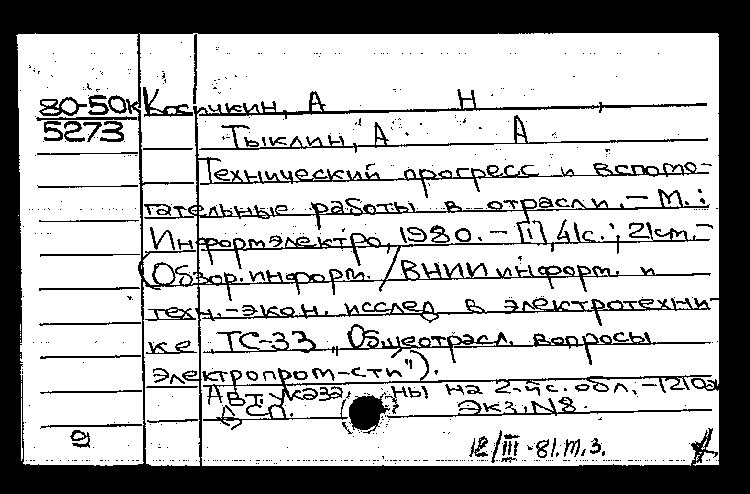 80-50к Косичкин, А Н
5273 Тыклин, А А
Технический прогресс и вспомо-
гательные работы в отрасли. – М. :
Информэлектро, 1980. – [1], 41с. ; 21см. –
(Обзор. информ. / ВНИИ информ. и
техн.-экон. исслед в электротехни-
ке. ТС-33 "Общеотрасл. вопросы
электропром-сти").
Авт. указа ны на 2-й с. обл. –
сп. экз. N8.
12/III-81. т. 3.